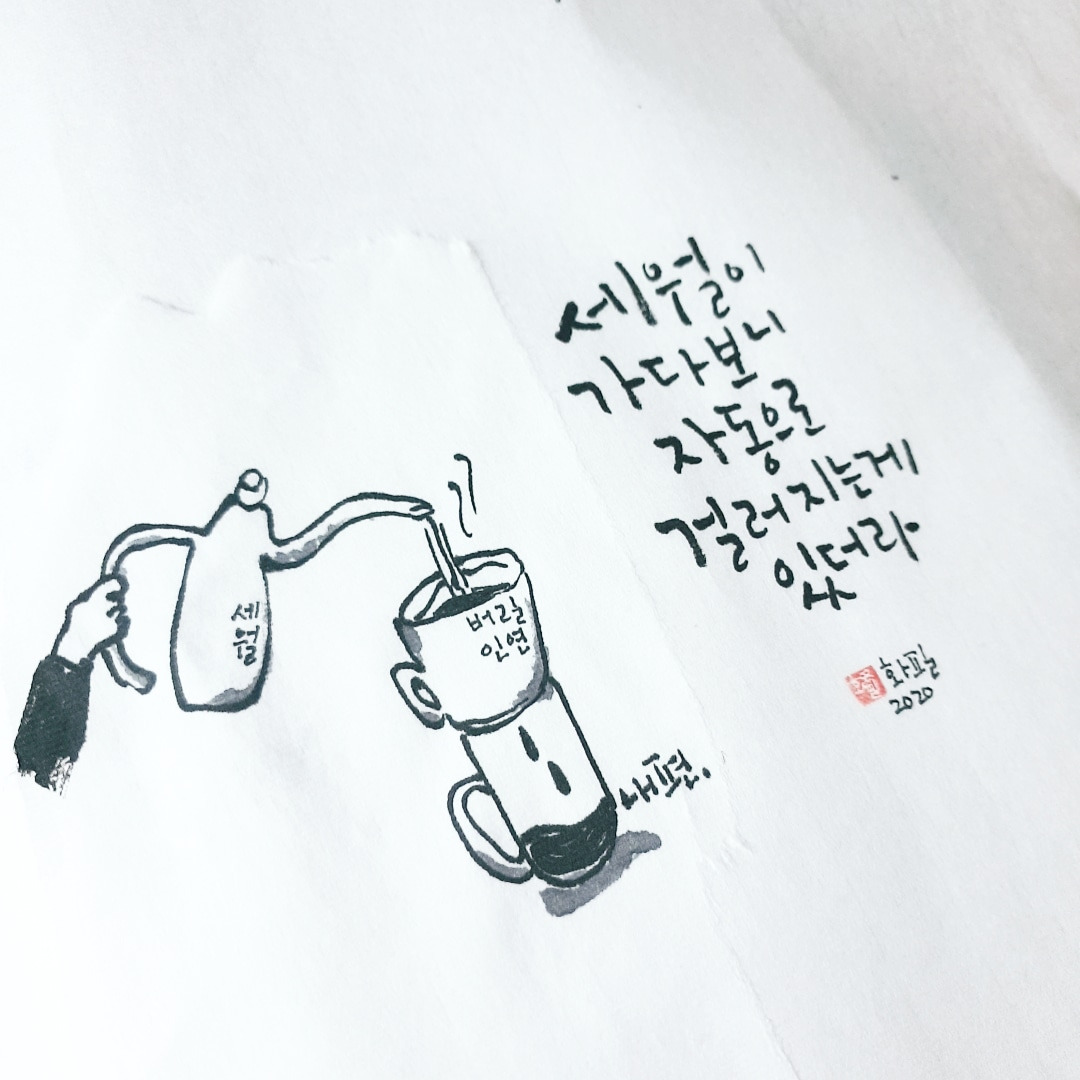 세월이
가다보니
자동으로
걸러지는게
있더라
화필
2020
세
월
버릴
인연
내편.